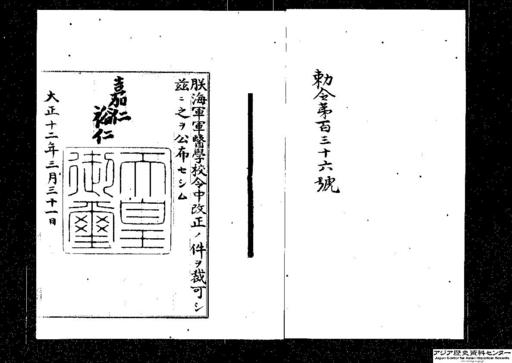 勅令第百三十六號
朕海軍軍醫學校令中改正ノ件ヲ裁可シ
茲ニ之ヲ公布セシム
嘉仁
裕仁
天皇御璽
大正十二年三月三十一日
アジア歴史資料センター
Japan Center for Asian Historical Records